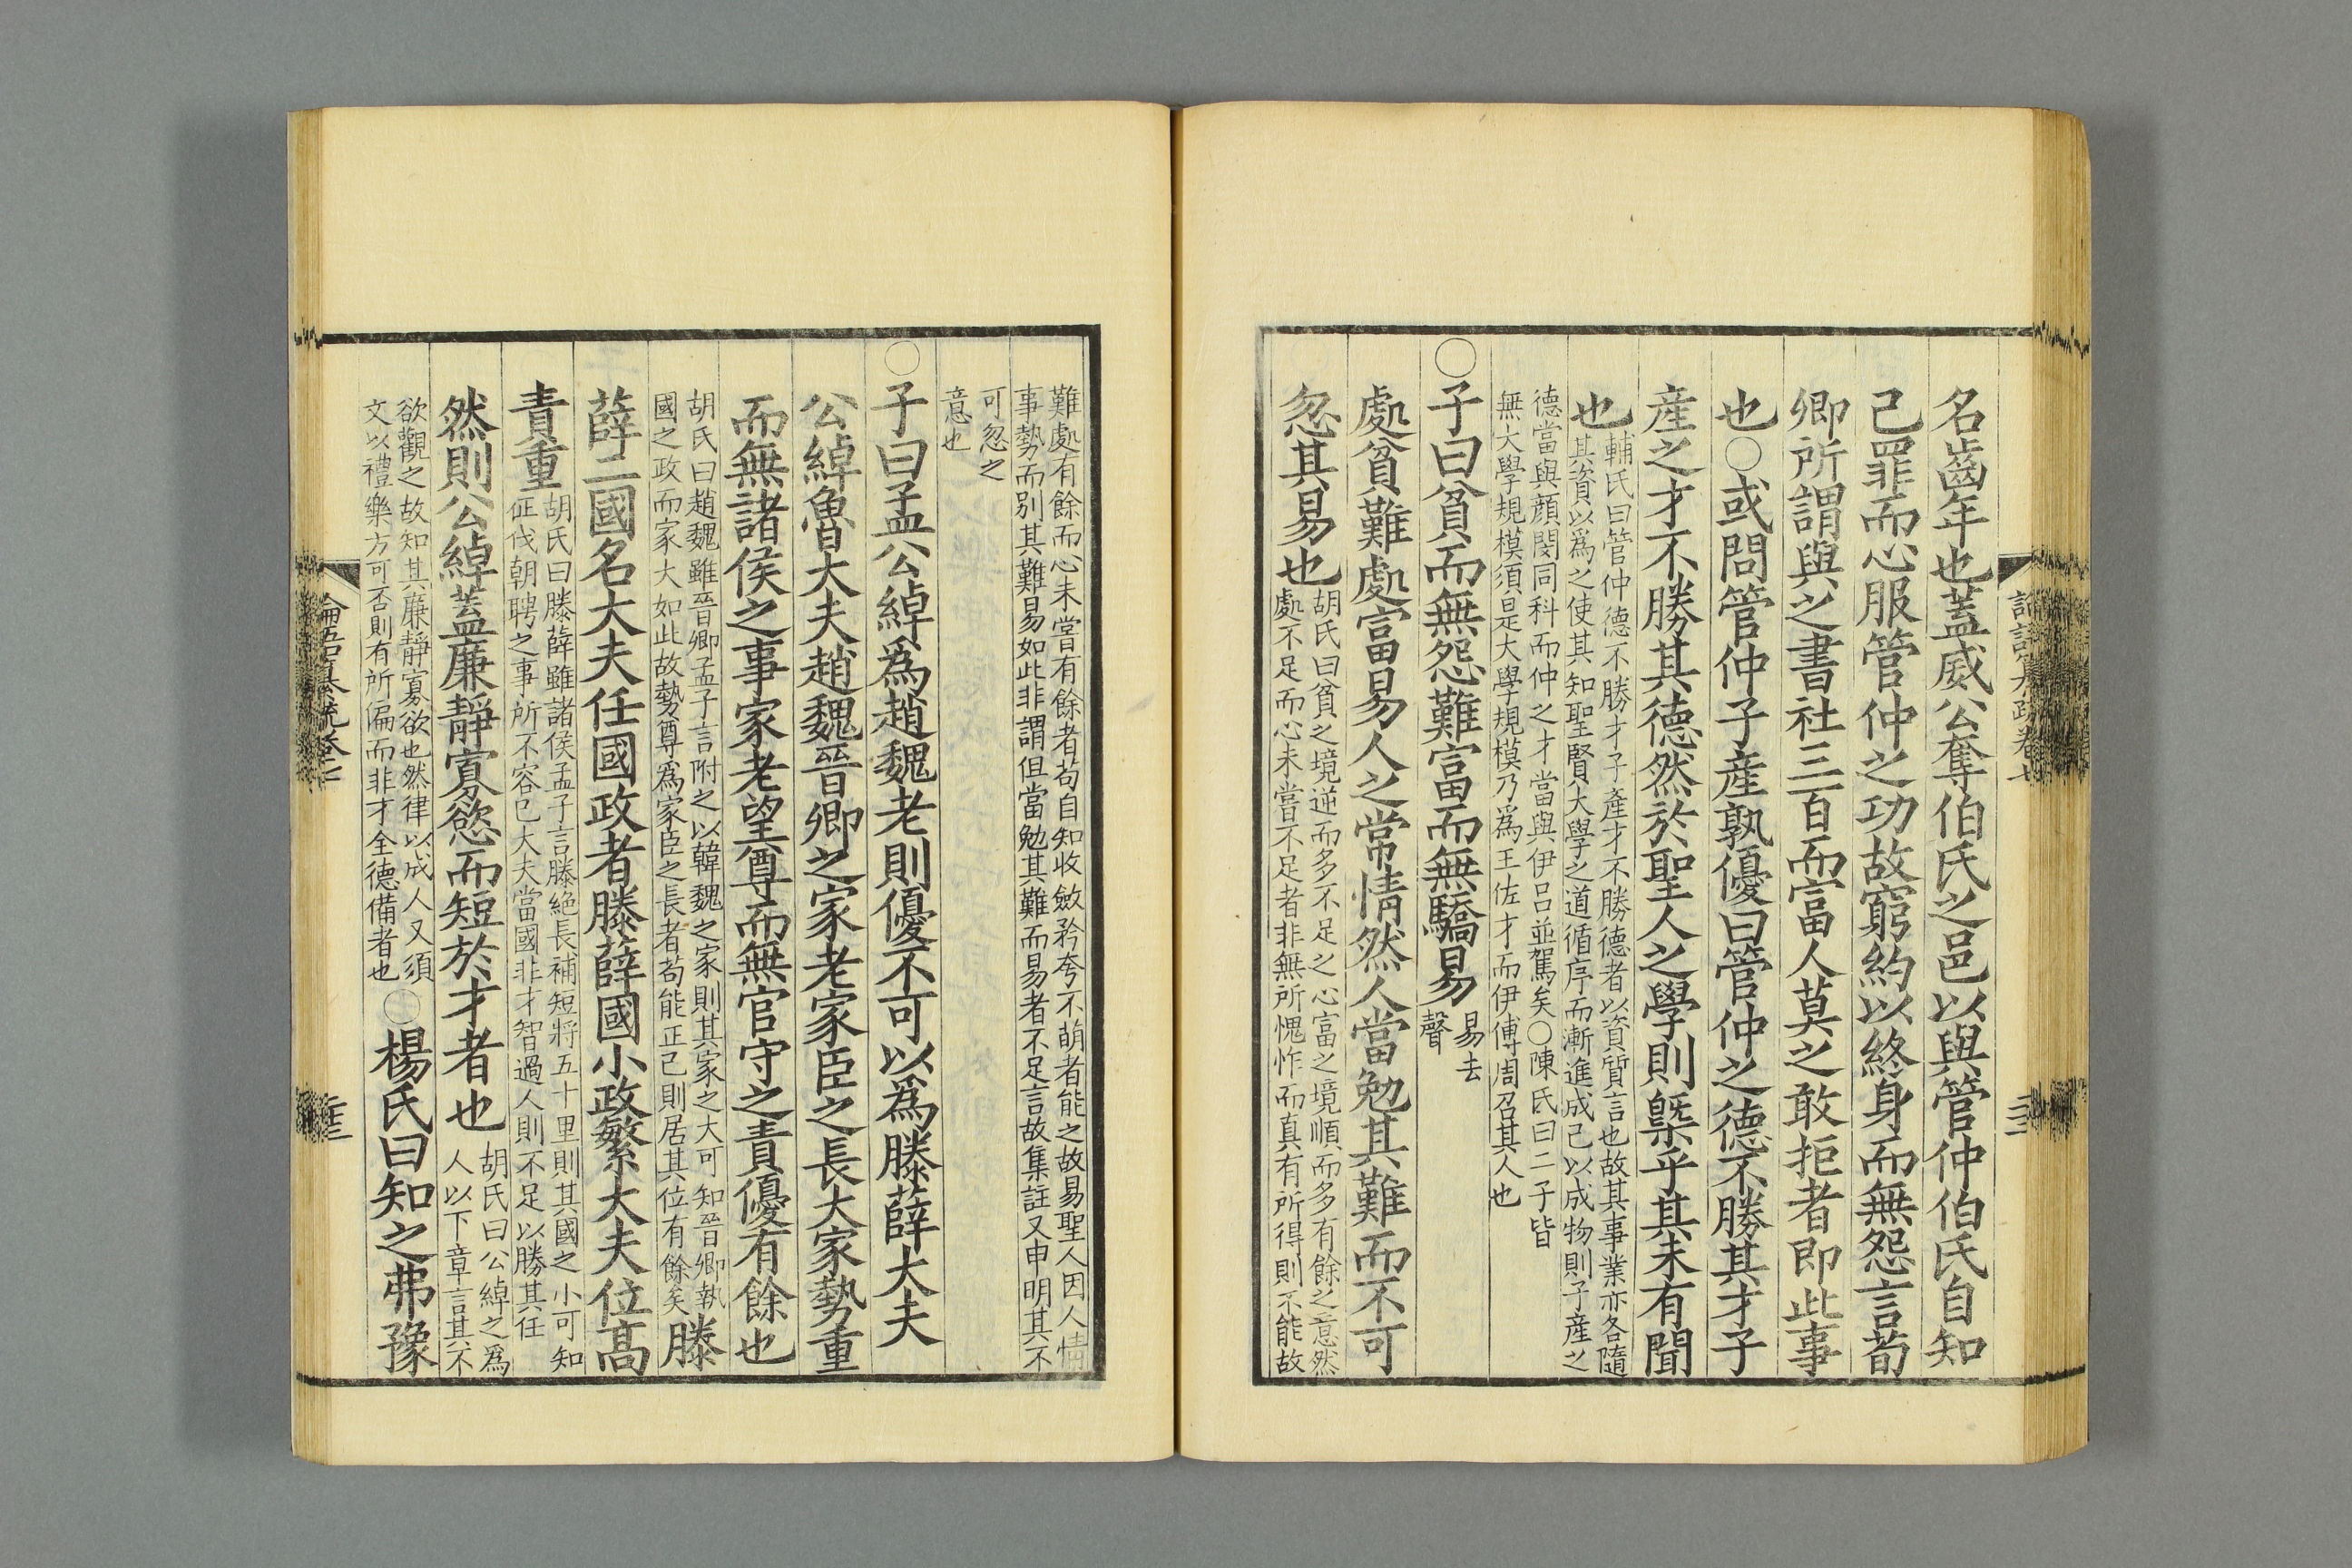 名齒年也蓋威公奪伯氏之邑以與管仲伯氏自知
己罪而心服管仲之功故窮約以終身而無怨言荀
卿所謂與之書社三百而富人莫之敢拒者即此事
也○或問管仲子產孰優曰管仲之德不勝其才子
產之才不勝其德然於聖人之學則槩乎其未有聞
也
輔氏曰管仲德不勝才子產才不勝德者以資質言也故其事業亦各隨
其資以爲之使其知聖賢大學之道循序而漸進成己以成物則子產之
德當與顔閔同科而仲之才當與伊呂並駕矣○陳氏曰二子皆
無大學規模須是大學規模乃爲王佐才而伊傅周召其人也
○子曰貧而無怨難富而無驕易
易去
聲
處貧難處富易人之常情然人當勉其難而不可
忽其易也
胡氏曰貧之境逆而多不足之心富之境順而多有餘之意然
處不足而心未嘗不足者非無所愧怍而真有所得則不能故
難處有餘而心未嘗有餘者苟自知收斂矜夸不萌者能之故易聖人因人情
事勢而別其難易如此非謂但當勉其難而易者不足言故集註又申明其不
可忽之
意也
○子曰孟公綽爲趙魏老則優不可以爲滕薛大夫
公綽魯大夫趙魏晉卿之家老家臣之長大家勢重
而無諸侯之事家老望尊而無官守之責優有餘也
胡氏曰趙魏雖晉卿孟子言附之以韓魏之家則其家之大可知晉卿執
國之政而家大如此故勢尊爲家臣之長者苟能正己則居其位有餘矣
滕
薛二國名大夫任國政者滕薛國小政繁大夫位高
責重
胡氏曰滕薛雖諸侯孟子言滕絶長補短將五十里則其國之小可知
征伐朝聘之事所不容已大夫當國非才智過人則不足以勝其任
然則公綽蓋廉靜寡慾而短於才者也
胡氏曰公綽之爲
人以下章言其不
欲觀之故知其廉靜寡欲也然律以成人又須
文以禮樂方可否則有所偏而非才全德備者也
○楊氏曰知之弗豫